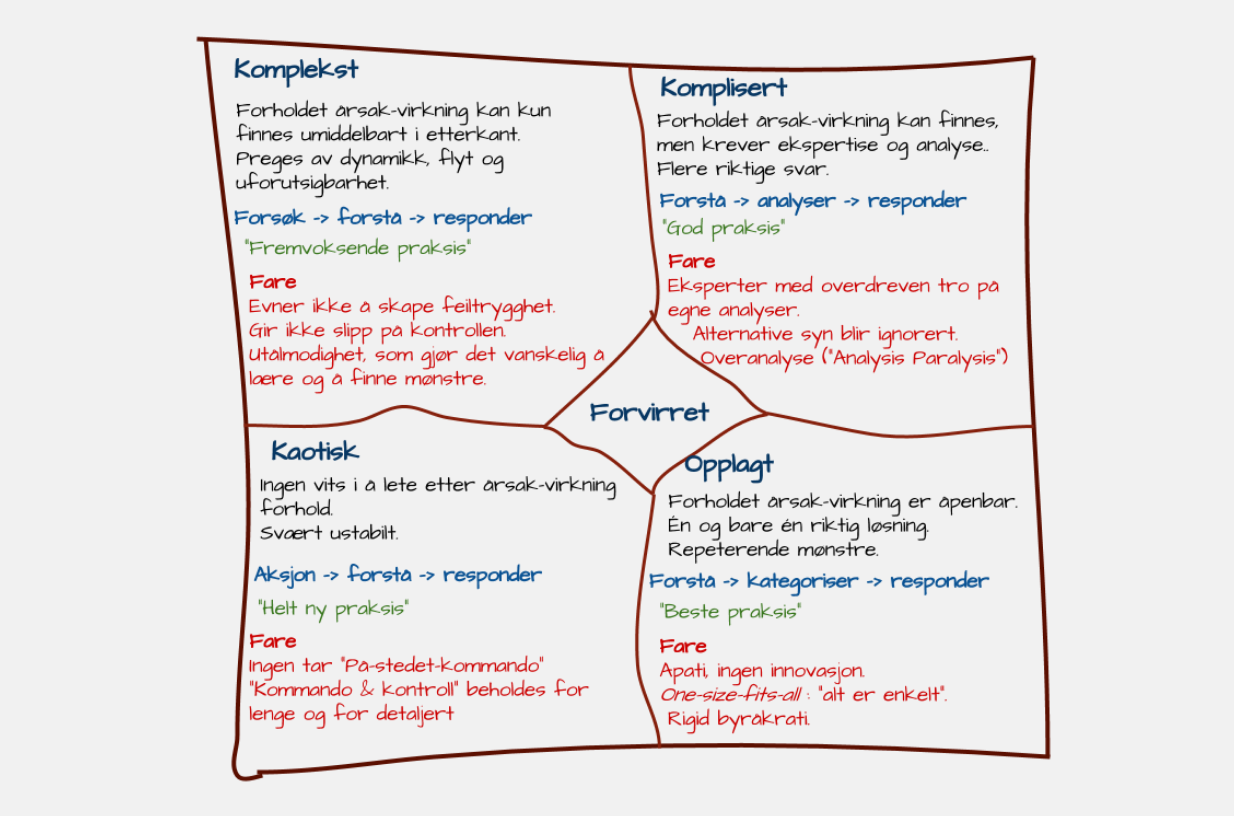 Komplekst
Forholdet årsak-virkning kan kun
finnes umiddelbart i etterkant.
Preges av dynamikk, flyt og
uforutsigbarhet.
Forsøk -> forstå -> responder
"Fremvoksende praksis"
Fare
Evner ikke å skape feiltrygghet.
Gir ikke slipp på kontrollen.
Utålmodighet, som gjør det vanskelig å
lære og å finne mønstre.
Komplisert
Forholdet årsak-virkning kan finnes,
men krever ekspertise og analyse..
Flere riktige svar.
Forstå -> analyser -> responder
"God praksis"
Fare
Eksperter med overdreven tro på
egne analyser.
Alternative syn blir ignorert.
Overanalyse ("Analysis Paralysis")
Forvirret
Kaotisk
Ingen vits i å lete etter årsak-virkning
forhold.
Svært ustabilt.
Aksjon -> forstå -> responder
"Helt ny praksis"
Fare
Ingen tar "På-stedet-kommando"
"Kommando & kontroll" beholdes for
lenge og for detaljert
Opplagt
Forholdet årsak-virkning er åpenbar.
Én og bare én riktig løsning.
Repeterende mønstre.
Forstå -> kategoriser -> responder
"Beste praksis"
Fare
Apati, ingen innovasjon.
One-size-fits-all : "alt er enkelt".
Rigid byråkrati.